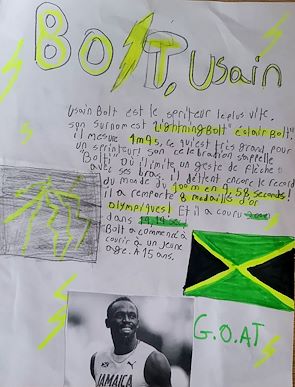 BOLT, Usain
Usain Bolt est le spriteur le plus vite.
son surnom est "Lightning Bolt" éclair Bolt"
il mesure 1m95, ce qui est très grand pour
un sprinteur! son celebration s'appelle
"Bolti" Où il imite un geste de flèche
avec ses bras. il détient encore le record
du monde du 100m en 9,58 seconds!
il a remporté 8 medailles d'or
olympiques! Et il a couru
dans
Bolt a commencé à
courir à un jeune
age. A 15 ans.
JAMAICA
G.O.AT